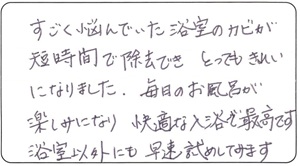 すごく悩んでいた浴室のカビが
短時間で除去でき とってもきれい
になりました. 毎日のお風呂が
楽しみになり 快適な入浴で最高です
浴室以外にも 早速試めしてみます